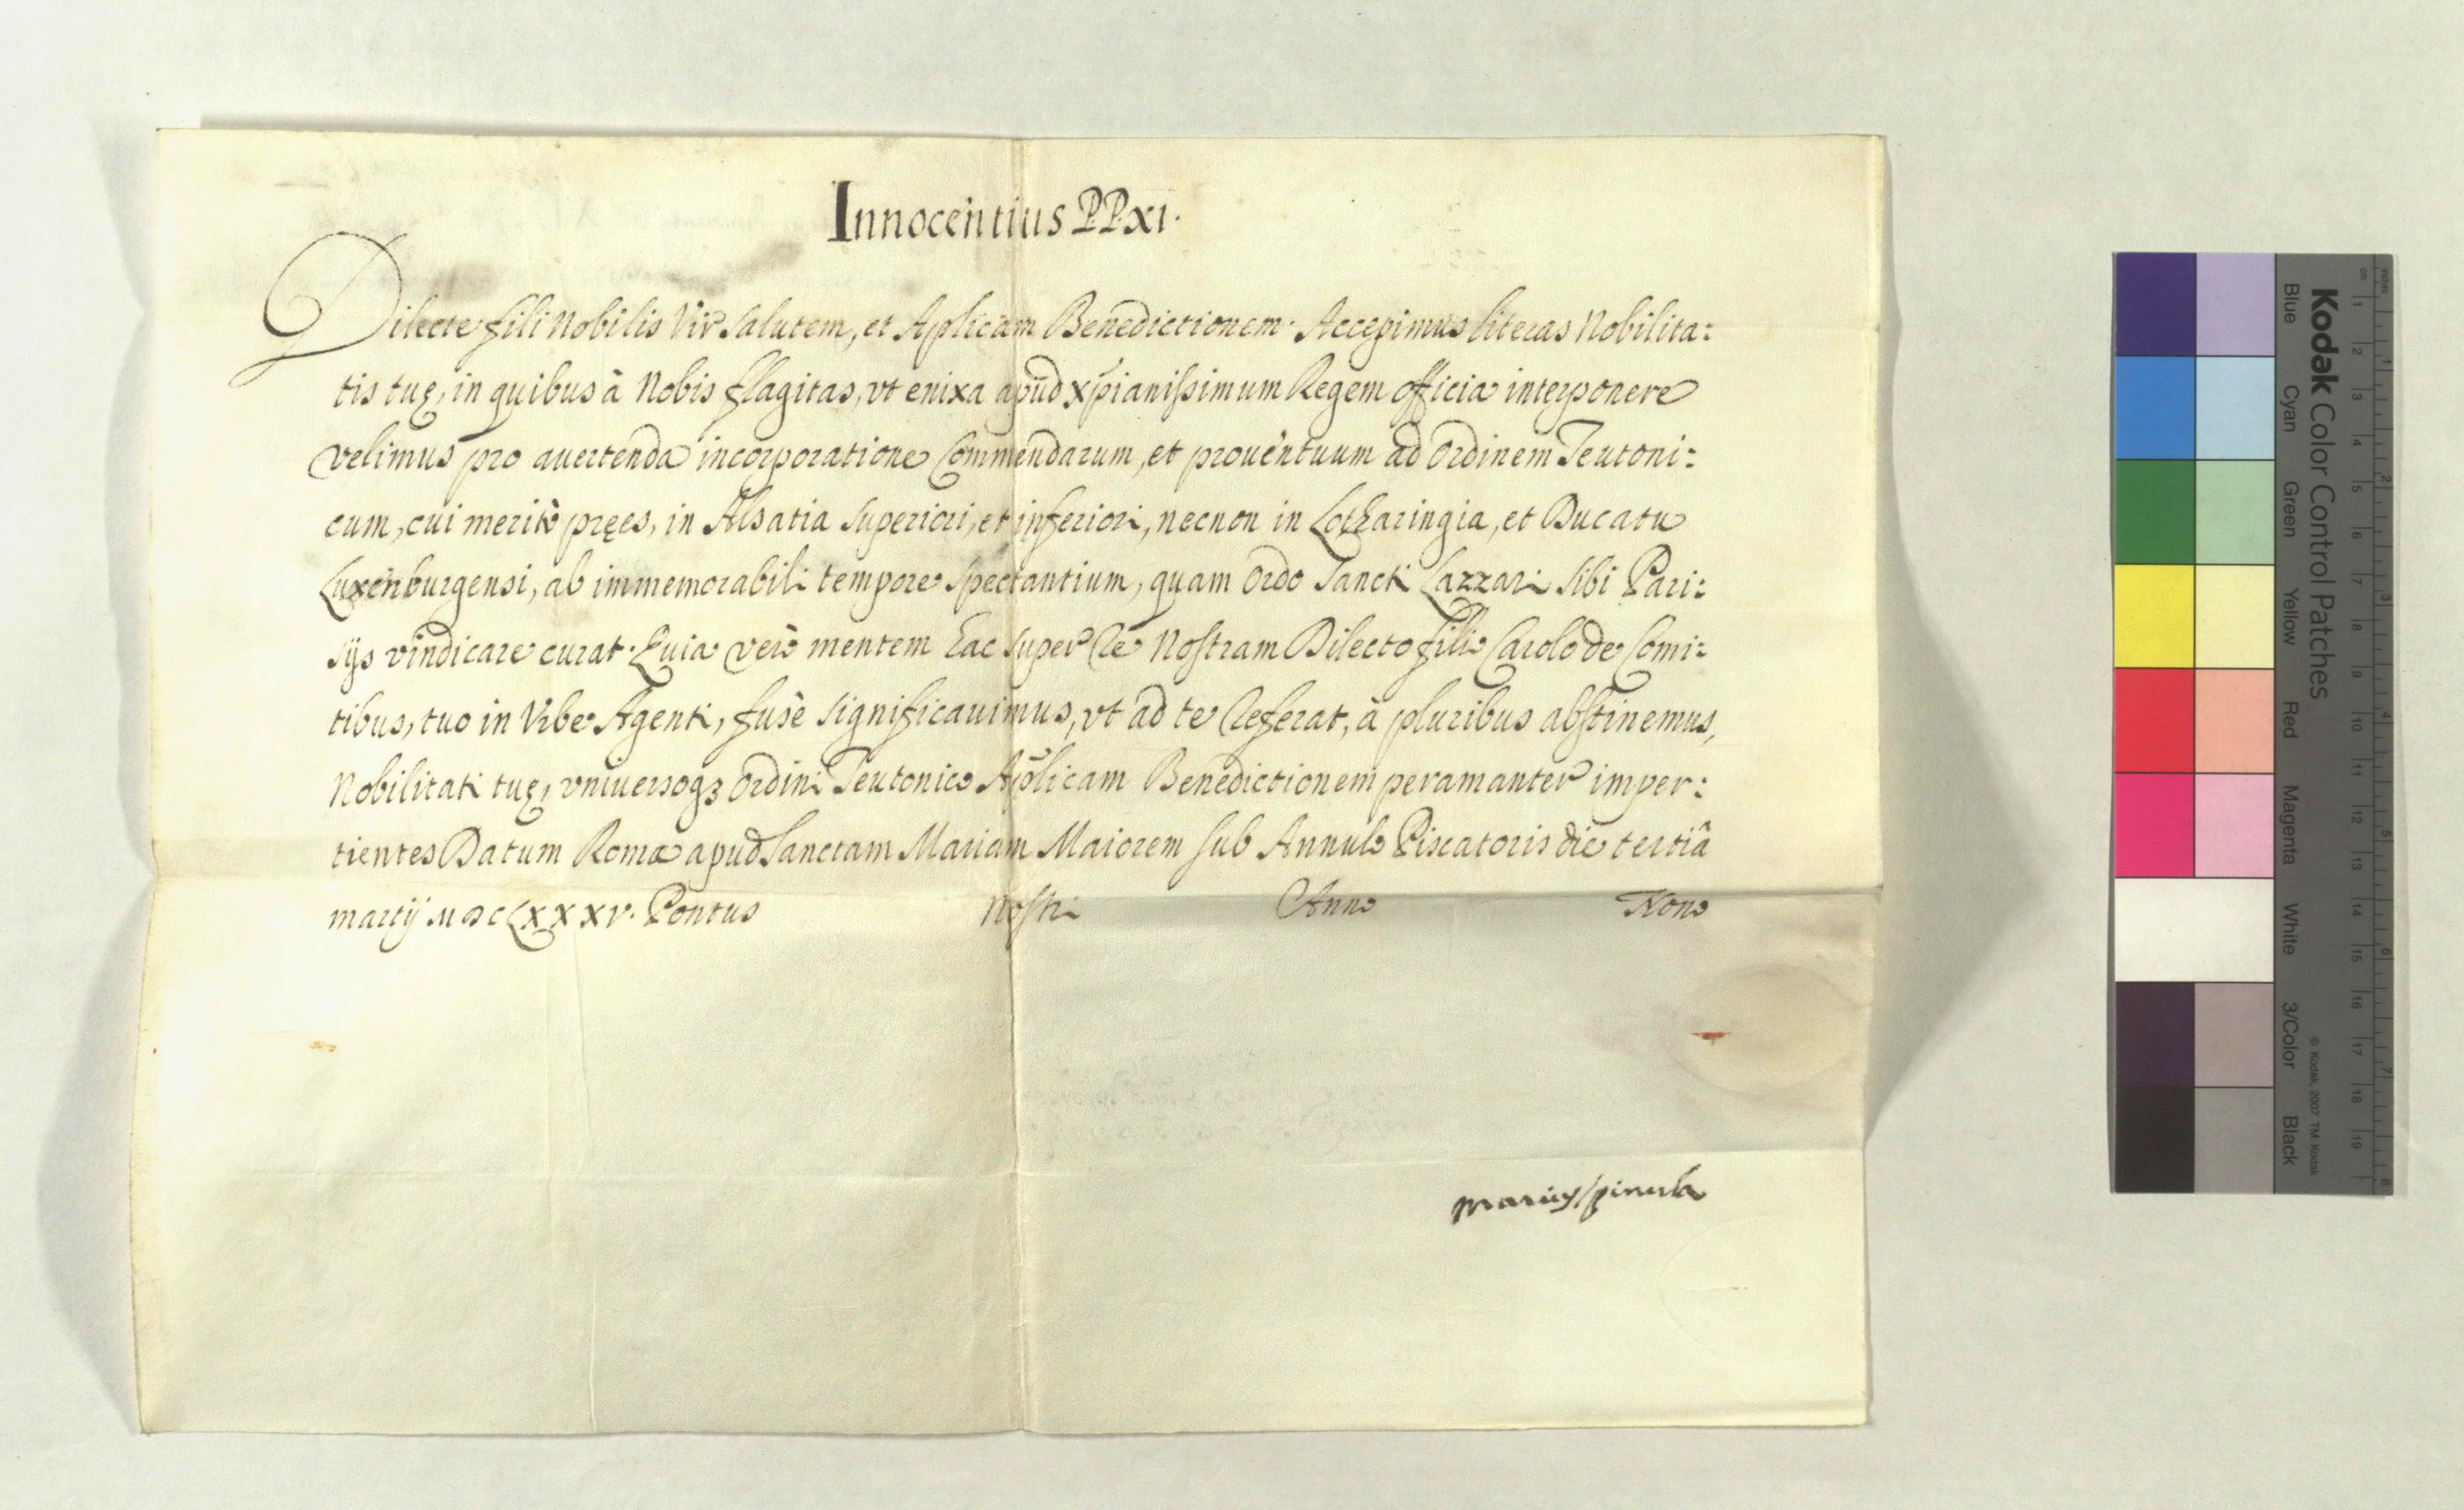 Innocentius PP. XI.
Dilecte fili Nobilis Vir Salutem, et Aplicam Benedictionem. Accepimus literas Nobilita:
tis tuę, in quibus à Nobis flagitas, vt enixa apud Xpianissimum Regem officia interponere
velimus pro auertenda incorporatione Commendarum, et prouentuum ad Ordinem Teutoni:
cum, cui meritò pręes, in Alsatia Superiori, et inferiori, necnon in Lotharingia, et Ducatu
Luxenburgensi, ab immemorabili tempore spectantium, quam Ordo Sancti Lazzari sibi Pari:
sijs vindicare curat. Quia verò mentem hac super re Nostram Dilecto filio Carolo de Comi:
tibus, tuo in Vrbe Agenti, fusè significauimus, vt ad te referat, à pluribus abstinemus,
Nobilitati tuę, vniuersoqꝫ Ordini Teutonico Aplicam Benedictionem peramanter imper:
tientes Datum Romæ apud Sanctam Mariam Maiorem sub Annulo Piscatoris die tertiâ
martij MDCLXXXV. Pontus Nostri Anno Nono
Marius Spinula
Kodak Color Control Patches
Blue Cyan Green Yellow Red Magenta White 3/Color Black
© Kodak, 2007 TM: Kodak
inches 1 2 3 4 5 6 7 8
cm 1 2 3 4 5 6 7 8 9 10 11 12 13 14 15 16 17 18 19